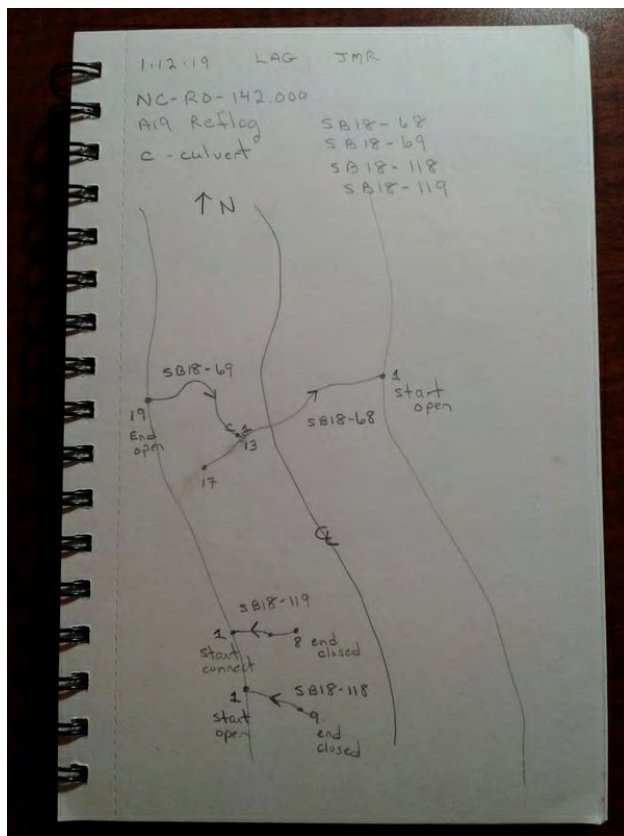 1.12.19 LAG JMR
NC-RD-142.000
A19 Reflag
C - culvert
SB18-68
SB18-69
SB18-118
SB18-119
↑N
SB18-69
19
End
open
C 1
13
17
SB18-68
1
start
open
℄
SB18-119
1
start
connect
8 end
closed
SB18-118
1
start
open
9
end
closed